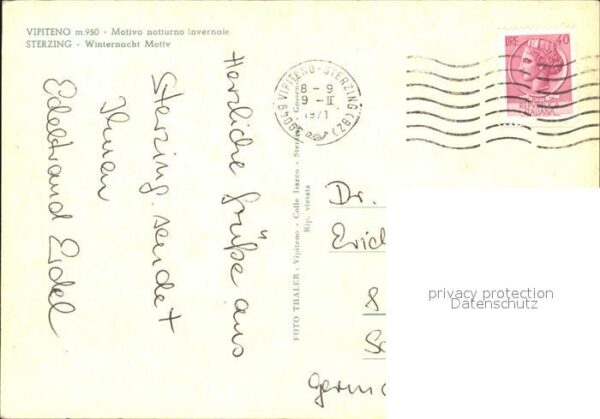 VIPITENO m.950 - Motivo notturno invernale
STERZING - Winternacht Motiv
Herzliche Grüße aus
Sterzing sendet
Ihnen
Edeltrand Eidel
FOTO THALER - Vipiteno - Colle Isarco -
Rip. vietata
39049 VIPITENO - STERZING (BZ)
8 - 9
9 - II
1971
LIRE 40
ITALIANA
Dr.
Erich
8
Germ
privacy protection
Datenschutz